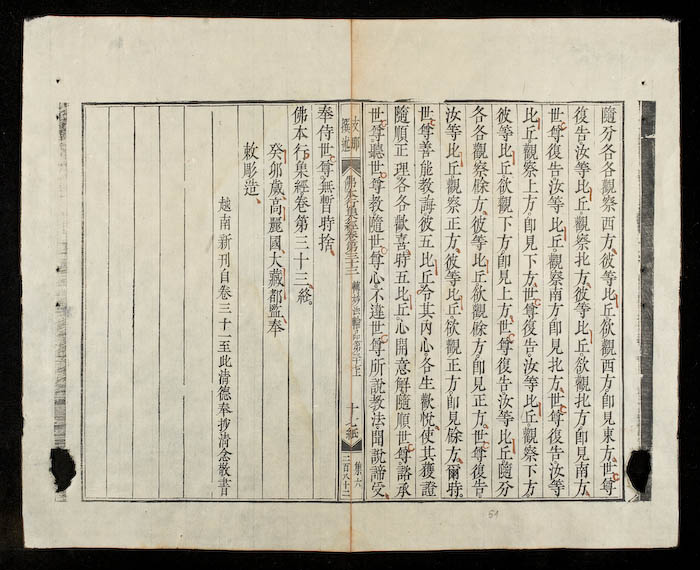 隨分各各觀察西方彼等比丘欲觀西方卽見東方世尊
復告汝等比丘觀察北方彼等比丘欲觀北方卽見南方
世尊復告汝等比丘觀察南方卽見北方世尊復告汝等
比丘觀察上方卽見下方世尊復告汝等比丘觀察下方
彼等比丘欲觀下方卽見上方世尊復告汝等比丘隨分
各各觀察餘方彼等比丘欲觀餘方卽見正方世尊復告
汝等比丘觀察正方彼等比丘欲觀正方卽見餘方爾時
世尊善能教誨彼五比丘令其內心各生歡悅使其獲證
隨順正理各各歡喜時五比丘心開意解隨順世尊諮承
世尊聽世尊教隨世尊心不違世尊所說教法聞說諦受
佛本行集經卷第三十三 轉妙法輪品第三十七上 十七紙
集六
三百八十二
奉侍世尊無暫時捨
佛本行集經卷第三十三終
癸卯歲高麗國大藏都監奉
敕彫造
越南新刊自卷三十一至此清德奉抄清念敬書
51